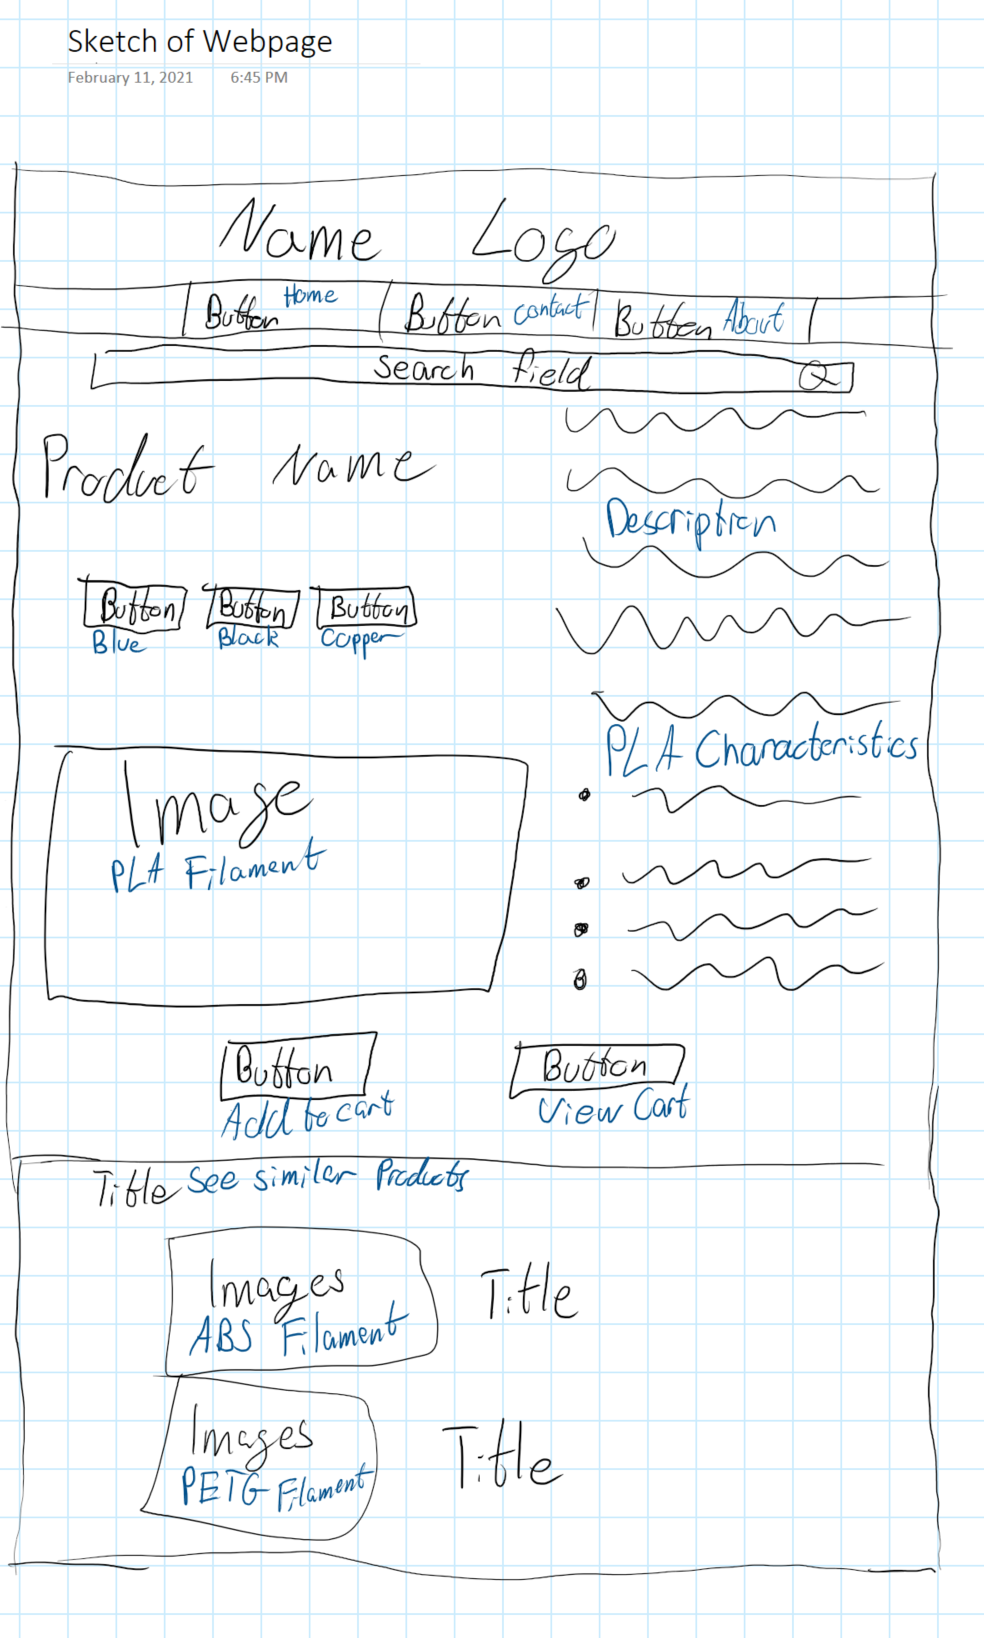 Sketch of Webpage
February 11, 2021 6:45 PM
Name Logo
Button Home Button contact Button About
search field
Product Name
Description
Button Button Button
Blue Black Copper
PLA Characteristics
Image
PLA Filament
Button Button
Add to cart View Cart
Title See similar Products
Images Title
ABS Filament
Images Title
PETG Filament